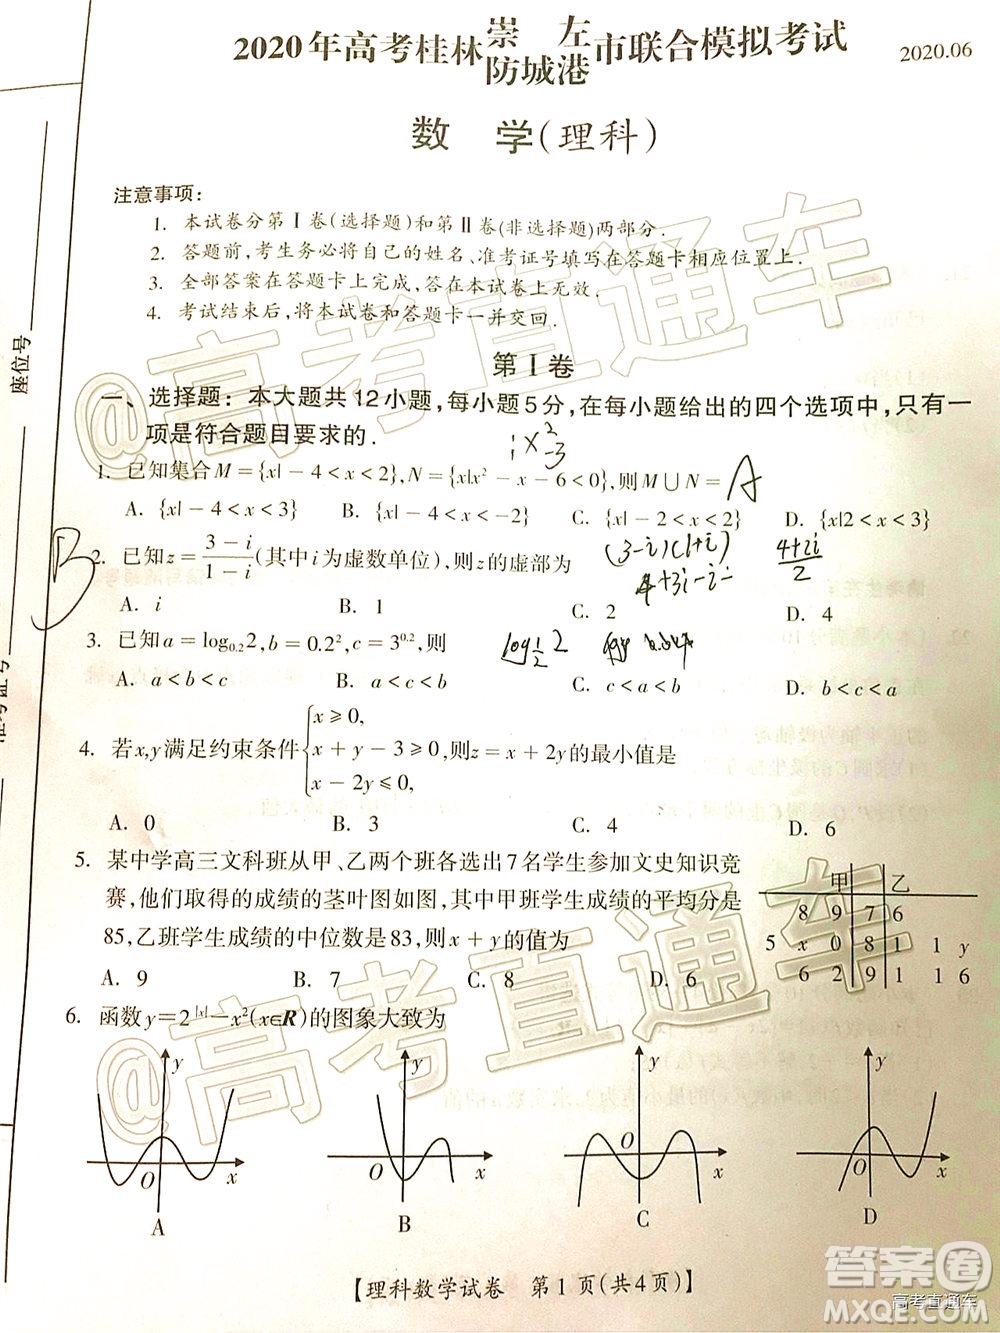 2020年高考桂林崇左防城港市联合模拟考试
2020.06
数 学(理科)
注意事项:
1. 本试卷分第Ⅰ卷(选择题)和第Ⅱ卷(非选择题)两部分.
2. 答题前,考生务必将自己的姓名、准考证号填写在答题卡相应位置上.
3. 全部答案在答题卡上完成,在本试卷上无效.
4. 考试结束后,将本试卷和答题卡一并交回.
座位号
第Ⅰ卷
一、选择题:本大题共12小题,每小题5分,在每小题给出的四个选项中,只有一
项是符合题目要求的.
1. 已知集合M={x|-4<x<2},N={x|x²-x-6<0},则M∪N= A
A. {x|-4<x<3} B. {x|-4<x<-2} C. {x|-2<x<2} D. {x|2<x<3}
B
2. 已知z=(3-i)/(1-i)(其中i为虚数单位),则z的虚部为
(3-i)(1+i) (4+2i)/2
4+3i-i-
A. i B. 1 C. 2 D. 4
3. 已知a=log₀.₂2,b=0.2²,c=3^0.2,则
A. a<b<c B. a<c<b C. c<a<b D. b<c<a
4. 若x,y满足约束条件{x≥0, x+y-3≥0, x-2y≤0,则z=x+2y的最小值是
A. 0 B. 3 C. 4 D. 6
5. 某中学高三文科班从甲、乙两个班各选出7名学生参加文史知识竞
赛,他们取得的成绩的茎叶图如图,其中甲班学生成绩的平均分是
85,乙班学生成绩的中位数是83,则x+y的值为
A. 9 B. 7 C. 8 D. 6
甲 乙
8 9 7 6
5 x 0 8 1 1 y
6 2 9 1 1 6
6. 函数y=2^|x|-x²(x∈R)的图象大致为
y O x A
y O x B
y O x C
y O x D
【理科数学试卷 第1页(共4页)】
@高考直通车
@高考直通车
答案圈
MXQE.COM
高考直通车